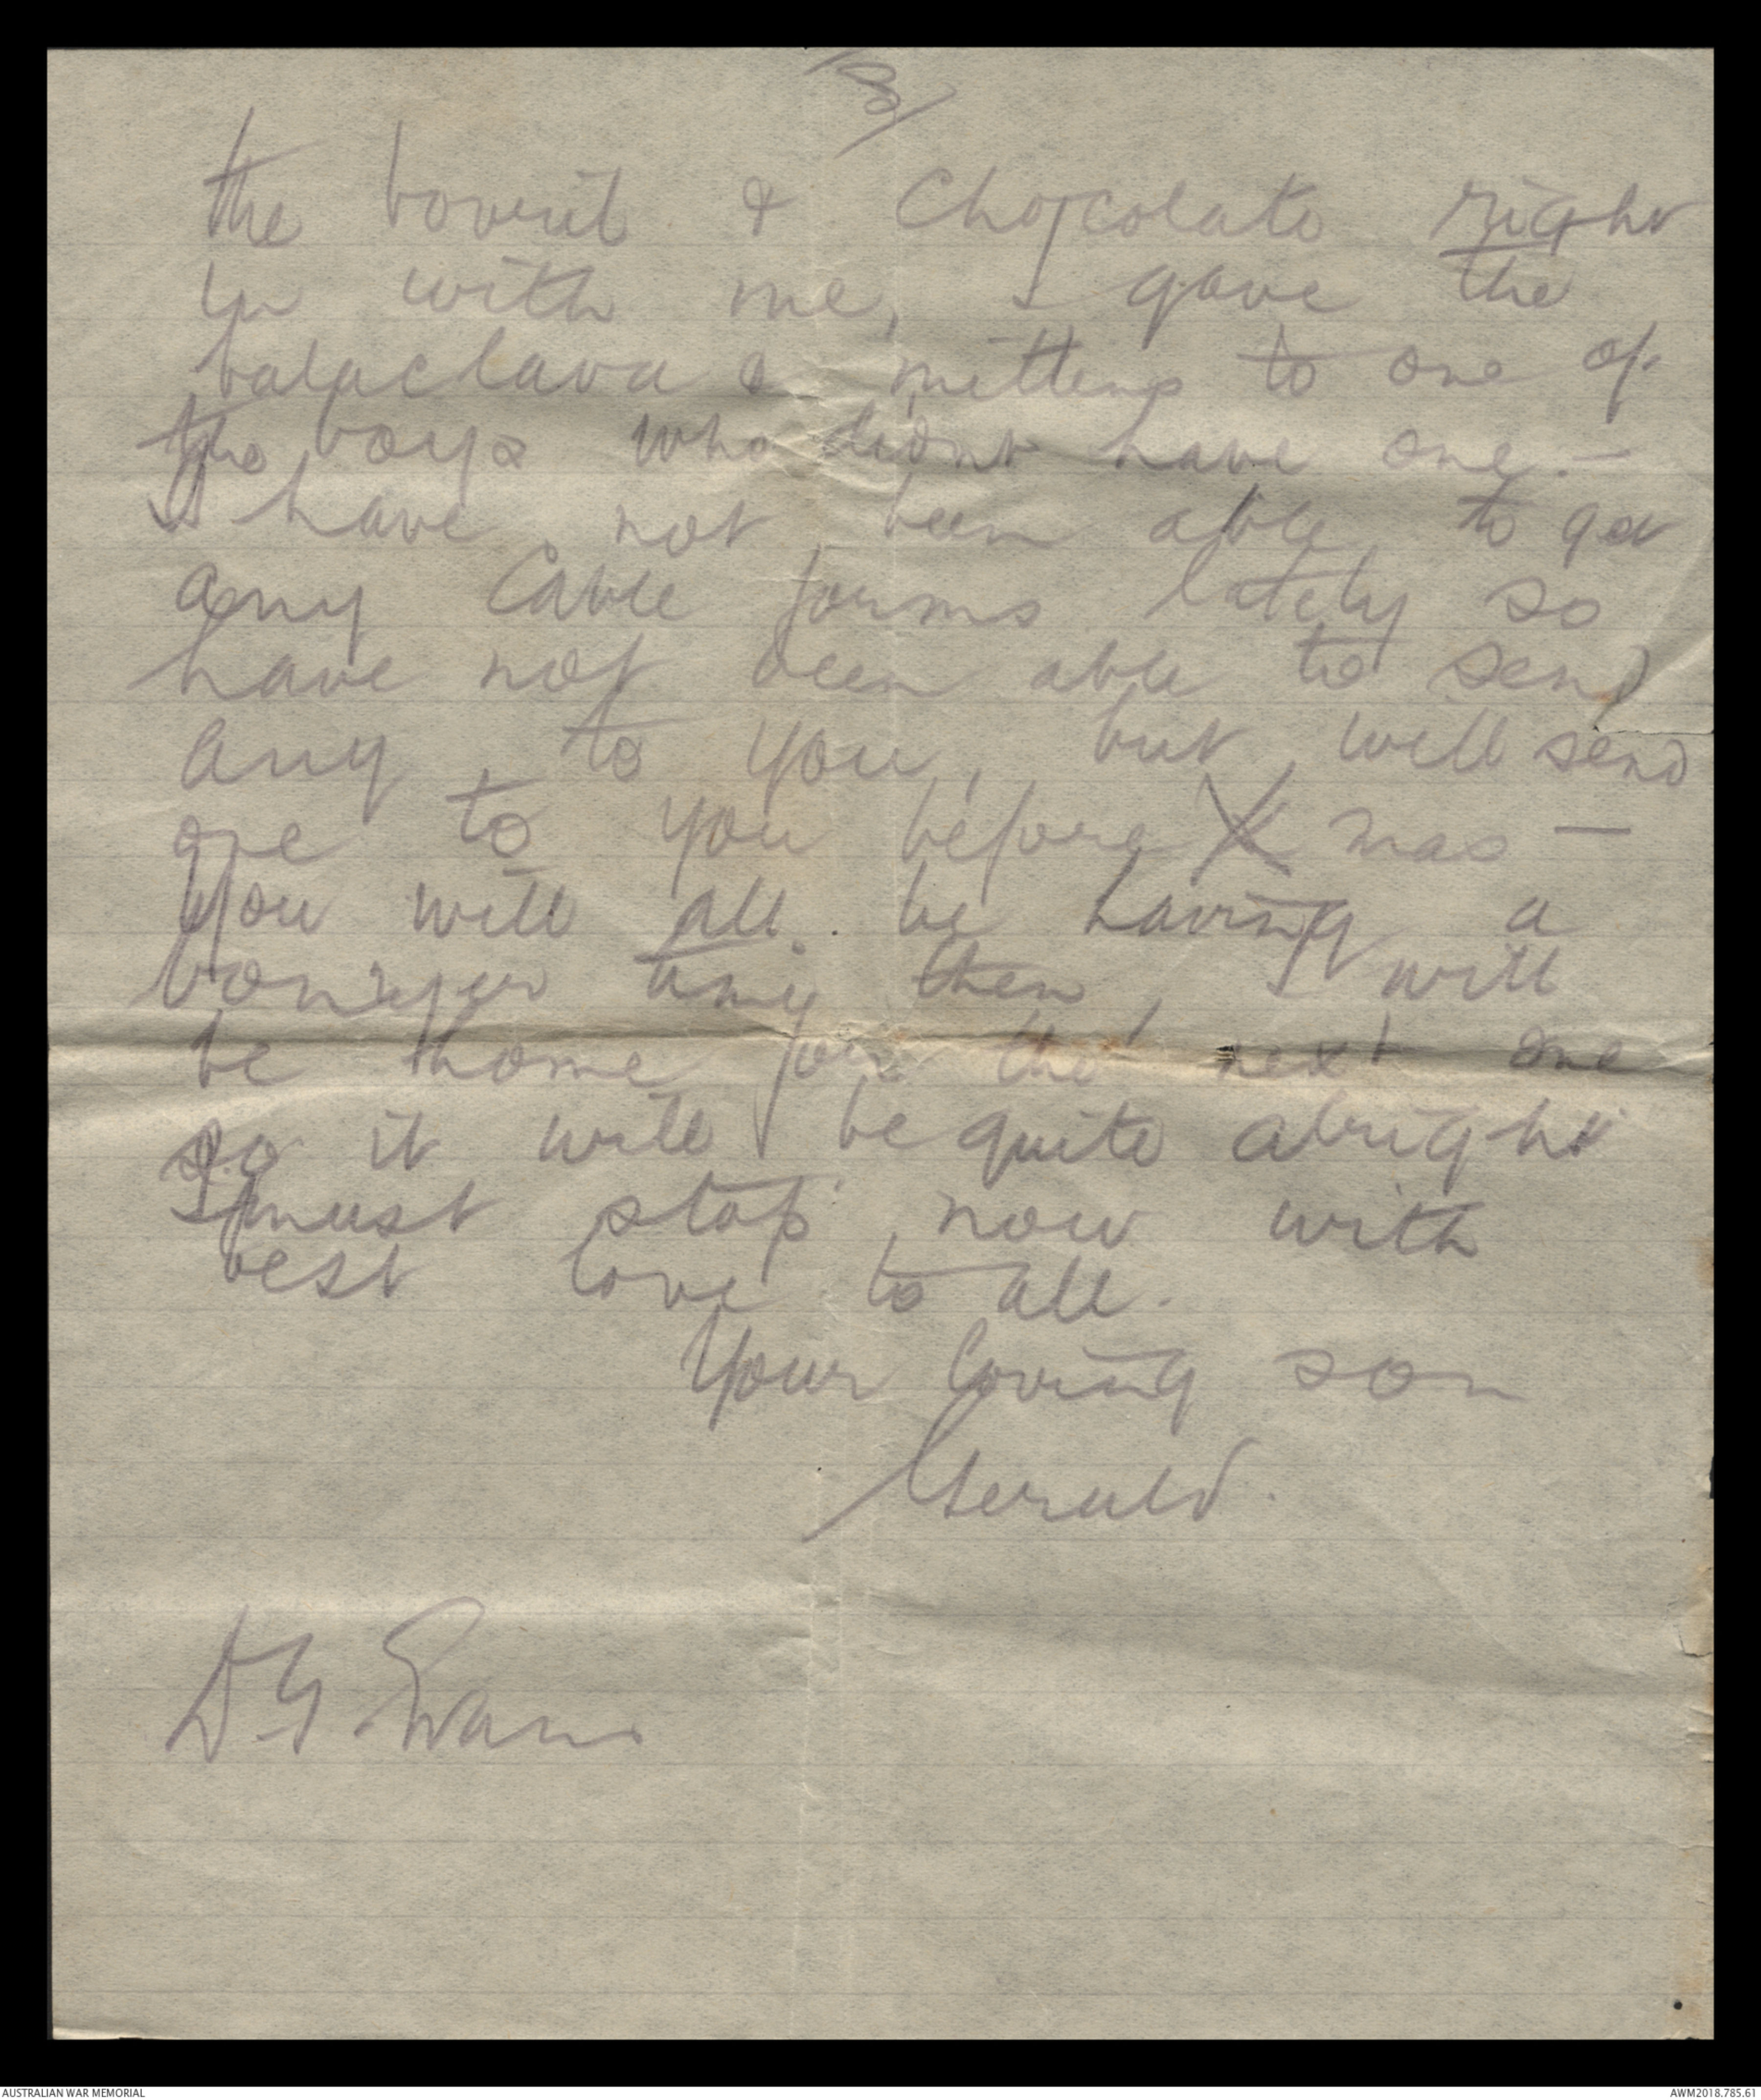 3/
the bovril & Chocolate right
in with me, I gave the
balaclava & mittens to one of
the boys who didnt have one. —
I have not been able to get
any Cable forms lately so
have not been able to send
any to you, but will send
one to you before Xmas —
You will all be having a
bonzer time then, I will
be home for the next one
so it will be quite alright
I must stop now with
best love to all.
Your loving son
Gerald.
D G Evans
AUSTRALIAN WAR MEMORIAL
AWM2018.785.61